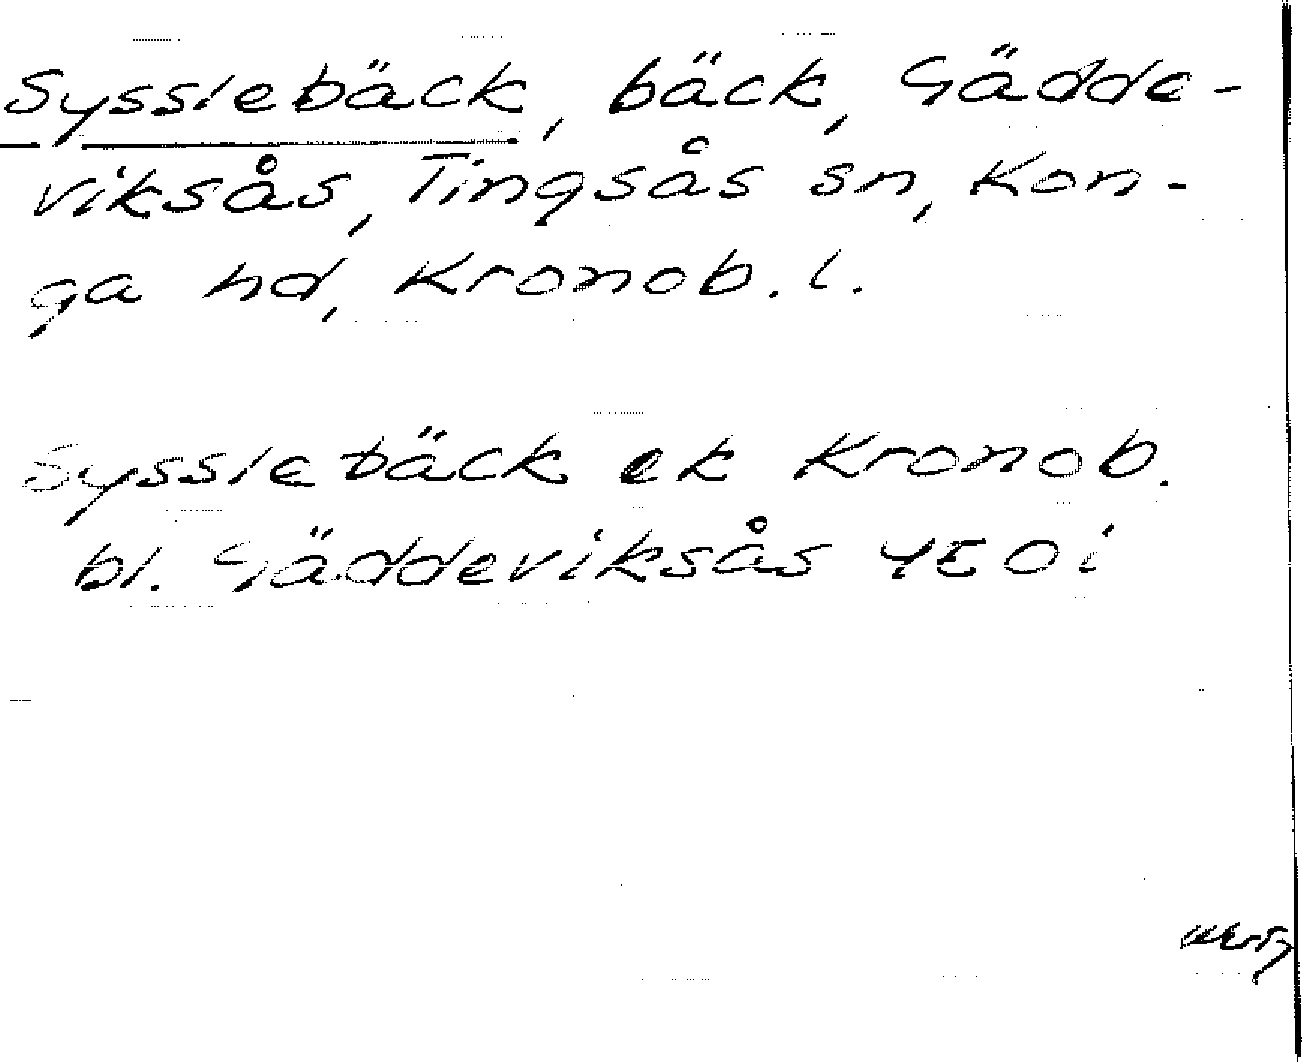 Sysslebäck, bäck, Gädde-
viksås, Tingsås sn, Kon-
ga hd, Kronob. l.
Sysslebäck ek Kronob.
bl. Gäddeviksås 4E0i